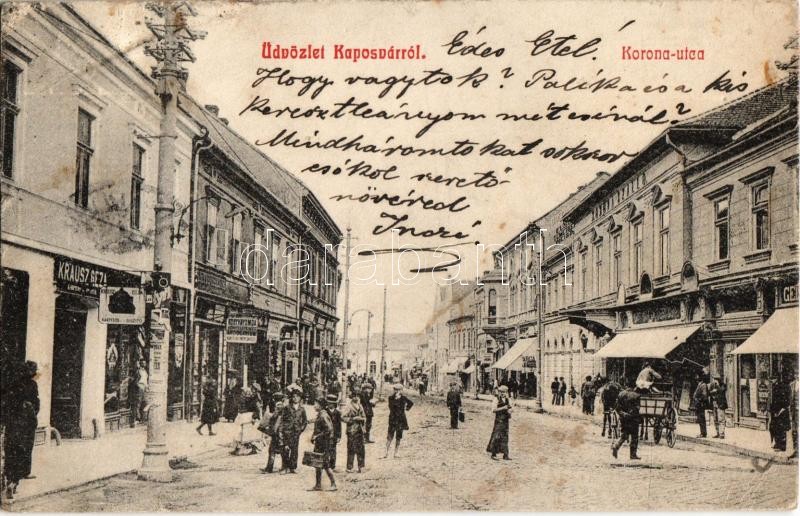 Üdvözlet Kaposvárról.
Korona-utca
Édes Etel!
Hogy vagytok? Palika és a kis
keresztleányom mit csinál?
Mindhármotokat sokszor
csókol szerető
növéred
Inczi
KRAUSZ GÉZA
darabanth